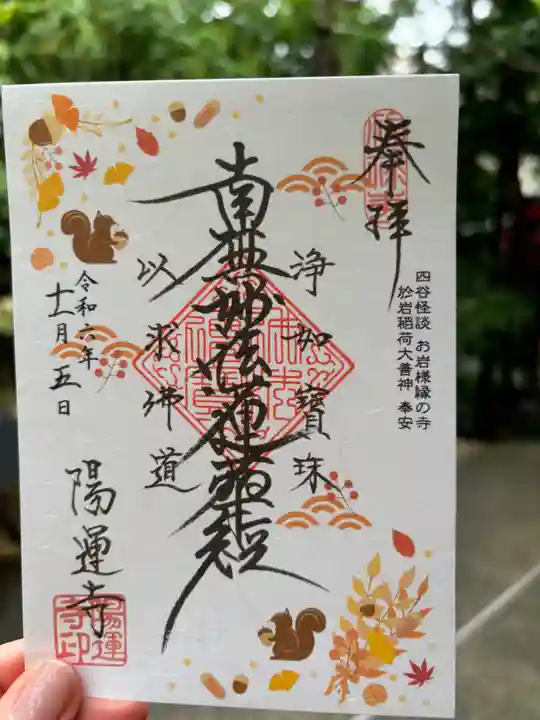 奉拝
四谷怪談 お岩様縁の寺
於岩稲荷大善神 奉安
浄如寶珠
南無妙法蓮華経
以求佛道
令和六年
十一月五日
陽運寺
陽運
寺印